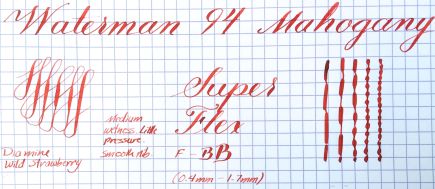 Waterman 94 Mahogany
Super
Flex
Medium
wetness. Little
pressure.
smooth nib
F - BB
(0.4mm - 1.7mm)
Diamine
Wild Strawberry